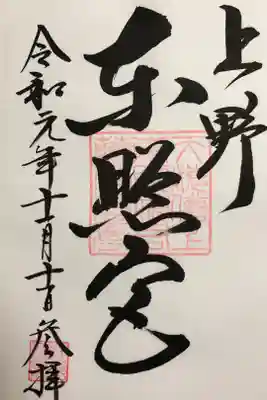 上野
東照宮
令和元年十一月十日参拝